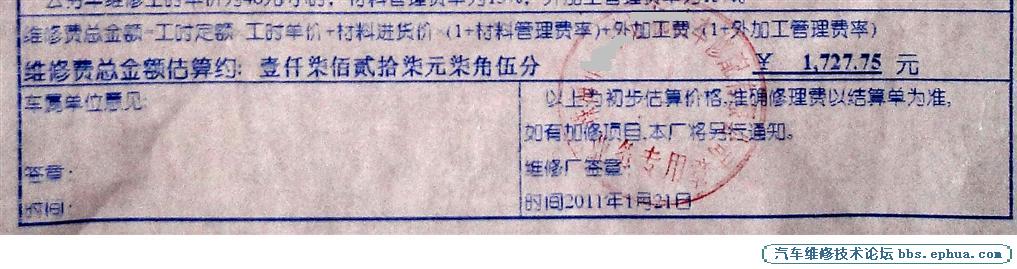 维修费总金额=工时定额 工时单价+材料进货价 (1+材料管理费率)+外加工费 (1+外加工管理费率)
维修费总金额估算约: 壹仟柒佰贰拾柒元柒角伍分 ¥ 1,727.75 元
车属单位意见:
签章:
时间:
以上为初步估算价格,准确修理费以结算单为准,
如有加修项目,本厂将另行通知。
维修厂签章:
时间2011年1月21日
业务专用章
汽车维修技术论坛 bbs.ephua.com